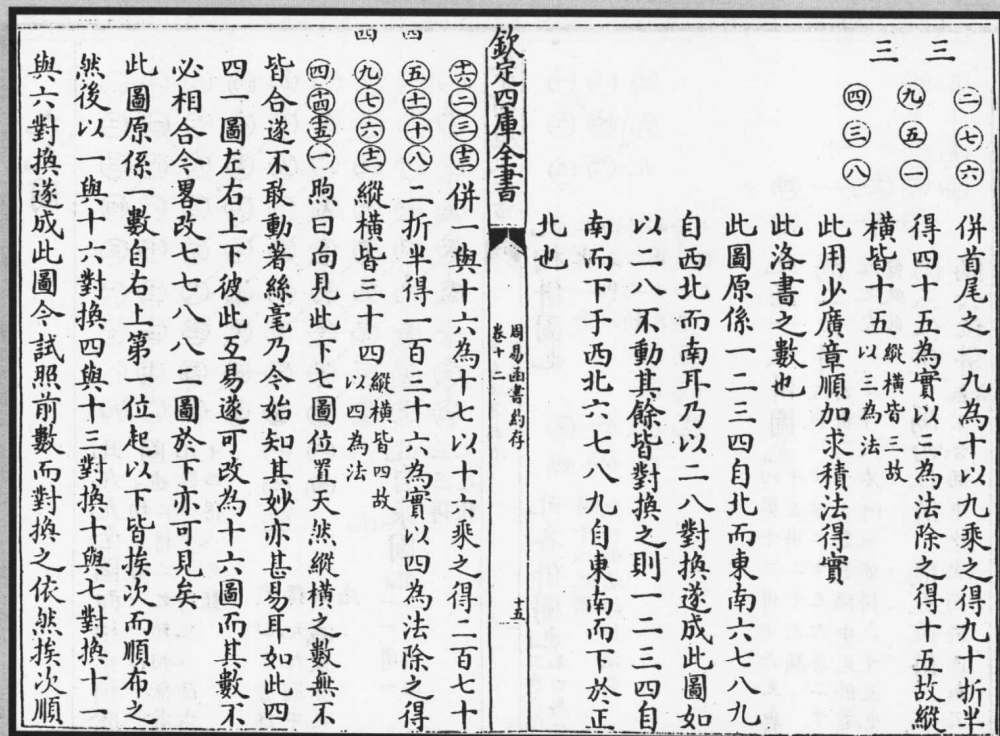 三 三
二七六
九五一
四三八
併首尾之一九為十以九乘之得九十折半
得四十五為實以三為法除之得十五故縱
橫皆十五 縱橫皆三故以三為法
此用少廣章順加求積法得實
此洛書之數也
此圖原係一二三四自北而東南六七八九
自西北而南耳乃以二八一對換遂成此圖如
以二八不動其餘皆對換之則一二三四自
南而下于西北六七八九自東南而下於正
北也
欽定四庫全書
周易函書約存
卷十二
十五
四 四
十六二三十三 併一與十六為十七以十六乘之得二百七十
五十一十八 二折半得一百三十六為實以四為法除之得
九七六十二 縱橫皆三十四 縱橫皆四故以四為法
四十四十五一 煦曰向見此下七圖位置天然縱橫之數無不
皆合遂不敢動著絲毫乃今始知其妙亦甚易耳如此四
四一圖左右上下彼此互易遂可改為十六圖而其數不
必相合今畧改七七八八二圖於下亦可見矣
此圖原係一數自右上第一位起以下皆挨次而順布之
然後以一與十六對換四與十三對換十與七對換十
與六對換遂成此圖今試照前數而對換之依然挨次順